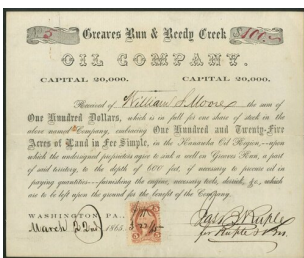 2 Greares Run & Reedy Creek 100
OIL COMPANY.
CAPITAL 20,000. CAPITAL 20,000.
Received of William S Moore the sum of
One Hundred Dollars, which is in full for one share of stock in the
above named Company, embracing One Hundred and Twenty-Five
Acres of Land in Fee Simple, in the Kanawha Oil Region,
which the undersigned proprietors agree to sink a well on Greares Run, a part
of said territory, to the depth of 600 feet, if necessary to procure oil in
paying quantities—furnishing the engine, necessary tools, derrick, &c., which
are to be left upon the ground for the benefit of the Company.
WASHINGTON PA.,
March 22nd 1865.